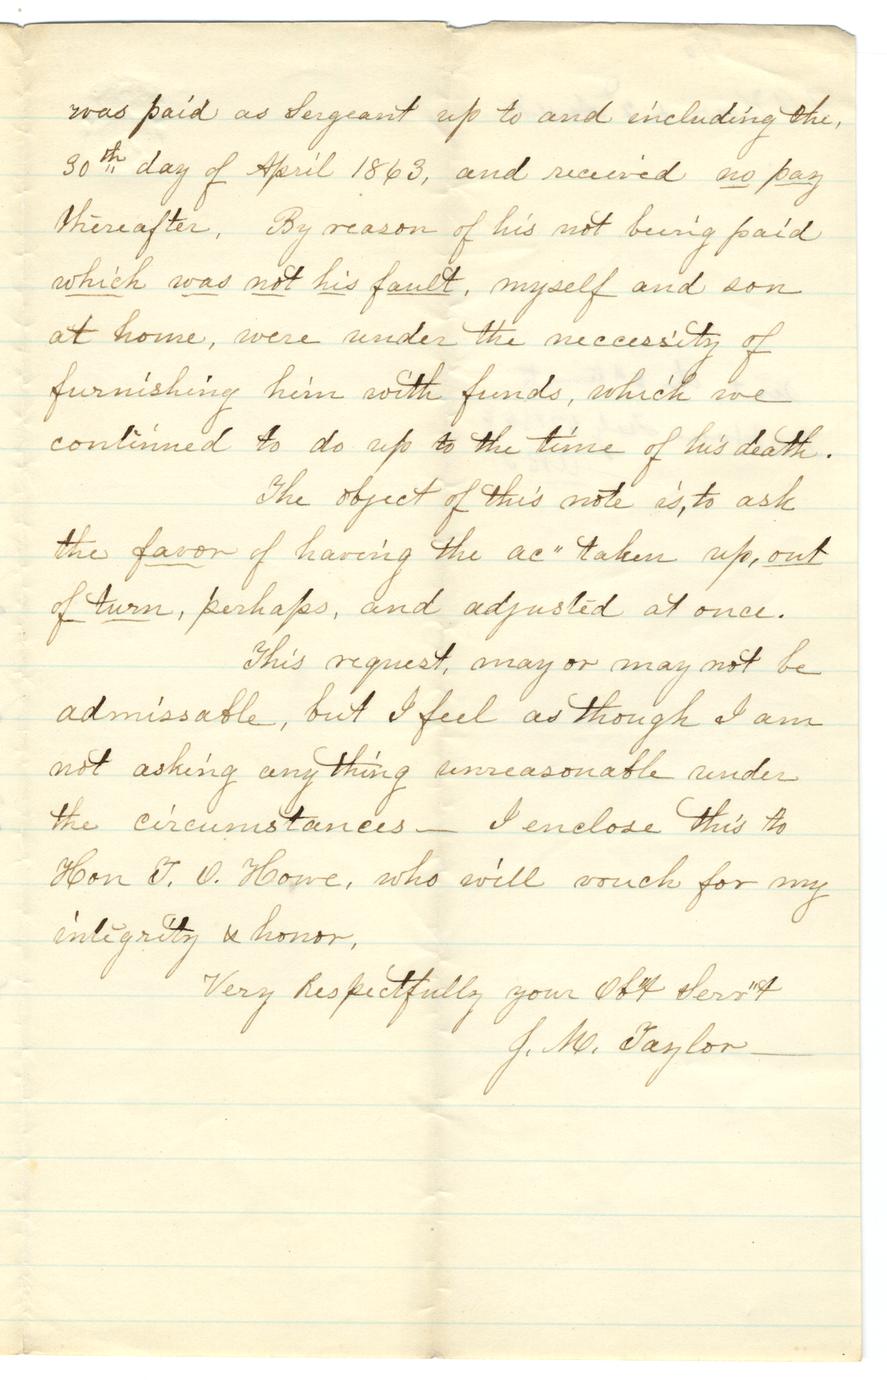 was paid as Sergeant up to and including the,
30th day of April 1863, and received no pay
thereafter, By reason of his not being paid
which was not his fault, myself and son
at home, were under the neccessity of
furnishing him with funds, which we
continned to do up to the time of his death.
The object of this note is, to ask
the favor of having the ac" taken up, out
of turn, perhaps, and adjusted at once.
This request, may or may not be
admissable, but I feel as though I am
not asking anything unreasonable under
the circumstances — I enclose this to
Hon T. O. Howe, who will vouch for my
integrity & honor,
Very Respectfully your Ob"t Serv"t
J. M. Taylor —